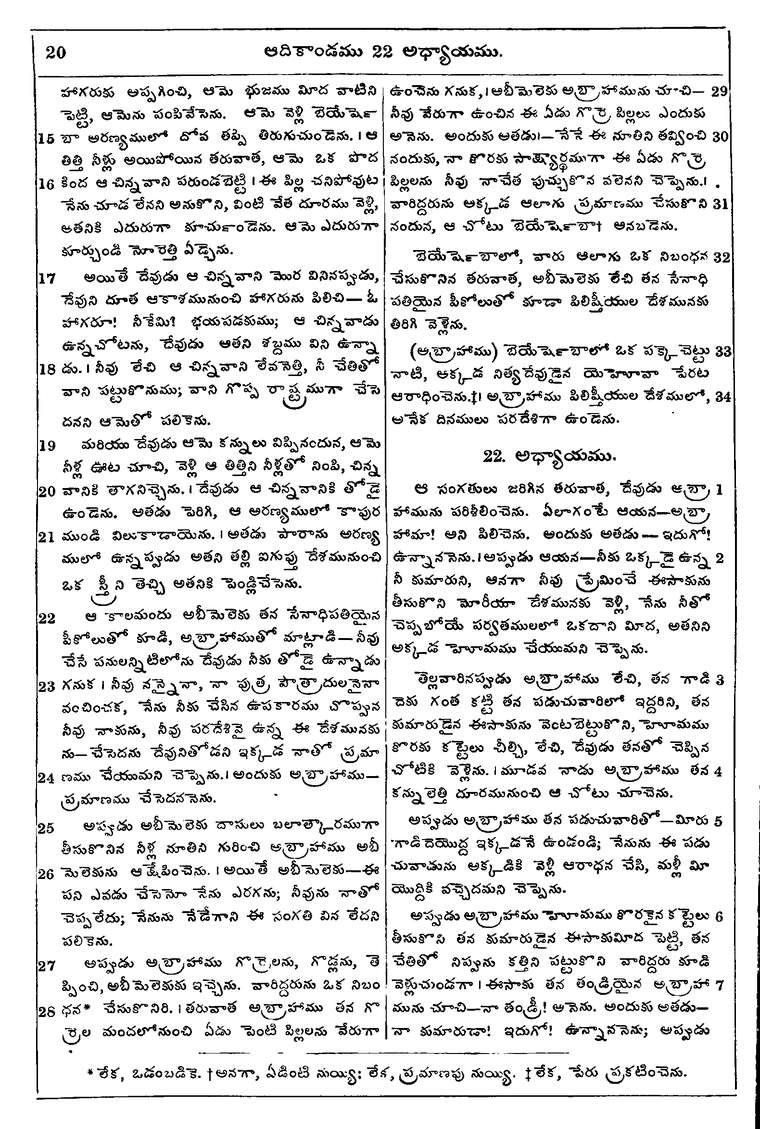 20 ఆదికాండము 22 అధ్యాయము.
హాగరుకు అప్పగించి, ఆమె భుజము మీద వాటిని
పెట్టి, ఆమెను పంపివేసెను. ఆమె వెళ్లి బెయేర్షె
15 బా అరణ్యములో దోవ తప్పి తిరుగుచుండెను. । ఆ
తిత్తి నీళ్లు అయిపోయిన తరువాత, ఆమె ఒక పొద
16 కింద ఆ చిన్నవాని పరుండబెట్టి । ఈ పిల్ల చనిపోవుట
నేను చూడ లేనని అనుకొని, వింటి వేత దూరము వెళ్లి,
అతనికి ఎదురుగా కూర్చుండెను. ఆమె ఎదురుగా
కూర్చుండి నోరెత్తి ఏడ్చెను.
17 అయితే దేవుడు ఆ చిన్నవాని మొర వినినప్పుడు,
దేవుని దూత ఆకాశమునుంచి హాగరును పిలిచి— ఓ
హాగరూ! నీకేమి? భయపడకుము; ఆ చిన్నవాడు
ఉన్నచోటను, దేవుడు ఆతని శబ్దము విని ఉన్నా
18 డు. । నీవు లేచి ఆ చిన్నవాని లేవనెత్తి, నీ చేతితో
వాని పట్టుకొనుము; వాని గొప్ప రాష్ట్రముగా చేసె
దనని ఆమెతో పలికెను.
19 మరియు దేవుడు ఆమె కన్నులు విప్పినందున, ఆమె
నీళ్ల ఊట చూచి, వెళ్లి ఆ తిత్తిని నీళ్లతో నింపి, చిన్న
20 వానికి తాగనిచ్చెను. । దేవుడు ఆ చిన్నవానికి తోడై
ఉండెను. అతడు పెరిగి, ఆ అరణ్యములో కాపుర
21 ముండి విలుకాడాయెను. । అతడు పారాను అరణ్య
ములో ఉన్నప్పుడు అతని తల్లి ఐగుప్తు దేశమునుంచి
ఒక స్త్రీని తెచ్చి అతనికి పెండ్లిచేసెను.
22 ఆ కాలమందు అబీమెలెకు తన సేనాధిపతియైన
పీకోలుతో కూడి, అబ్రాహాముతో మాట్లాడి— నీవు
చేసే పనులన్నిటిలోను దేవుడు నీకు తోడై ఉన్నాడు
23 గనుక । నీవు నన్నైనా, నా పుత్ర పౌత్రాదులనైనా
వంచించక, నేను నీకు చేసిన ఉపకారము చొప్పున
నీవు నాకును, నీవు పరదేశివై ఉన్న ఈ దేశమునకు
ను— చేసెదను దేవునితోడని ఇక్కడ నాతో ప్రమా
24 ణము చేయుమని చెప్పెను. । అందుకు అబ్రాహాము—
ప్రమాణము చేసెదననెను.
25 అప్పుడు అబీమెలెకు దాసులు బలాత్కారముగా
తీసుకొనిన నీళ్ల నూతిని గురించి అబ్రాహాము అబీ
26 మెలెకును ఆక్షేపించెను. । అయితే అబీమెలెకు—ఈ
పని ఎవడు చేసెనో నేను ఎరగను; నీవును నాతో
చెప్పలేదు; నేనును నేడేగాని ఈ సంగతి విన లేదని
పలికెను.
27 అప్పుడు అబ్రాహాము గొర్రెలను, గొడ్లను, తె
ప్పించి, అబీమెలెకుకు ఇచ్చెను. వారిద్దరును ఒక నిబం
28 ధన* చేసుకొనిరి. । తరువాత అబ్రాహాము తన గొ
ర్రెల మందలోనుంచి ఏడు పెంటి పిల్లలను వేరుగా
ఉంచెను గనుక, । అబీమెలెకు అబ్రాహామును చూచి— 29
నీవు వేరుగా ఉంచిన ఈ ఏడు గొర్రె పిల్లలు ఎందుకు
అనెను. అందుకు అతడు:— నేనే ఈ నూతిని తవ్వించి 30
నందుకు, నా కొరకు సాక్ష్యార్థముగా ఈ ఏడు గొర్రె
పిల్లలను నీవు నాచేత పుచ్చుకొన వలెనని చెప్పెను. ।
వారిద్దరును అక్కడ ఆలాగు ప్రమాణము చేసుకొని 31
నందున, ఆ చోటు బెయేర్షెబా† అనబడెను.
బెయేర్షెబాలో, వారు ఆలాగు ఒక నిబంధన 32
చేసుకొనిన తరువాత, అబీమెలెకు లేచి తన సేనాధి
పతియైన పీకోలుతో కూడా పిలిష్తీయుల దేశమునకు
తిరిగి వెళ్లెను.
(అబ్రాహాము) బెయేర్షెబాలో ఒక పక్కెచెట్టు 33
నాటి, అక్కడ నిత్యదేవుడైన యెహోవా పేరట
ఆరాధించెను.‡। అబ్రాహాము పిలిష్తీయుల దేశములో, 34
అనేక దినములు పరదేశిగా ఉండెను.
22. అధ్యాయము.
ఆ సంగతులు జరిగిన తరువాత, దేవుడు అబ్రా 1
హామును పరిశీలించెను. ఏలాగంటే ఆయన—అబ్రా
హామా! అని పిలిచెను. అందుకు అతడు— ఇదుగో!
ఉన్నాననెను. । అప్పుడు ఆయన—నీకు ఒక్కడై ఉన్న 2
నీ కుమారుని, అనగా నీవు ప్రేమించే ఈసాకును
తీసుకొని మోరీయా దేశమునకు వెళ్లి, నేను నీతో
చెప్పబోయే పర్వతములలో ఒకదాని మీద, అతనిని
అక్కడ హోమము చేయుమని చెప్పెను.
తెల్లవారినప్పుడు అబ్రాహాము లేచి, తన గాడి 3
దెకు గంత కట్టి తన పడుచువారిలో ఇద్దరిని, తన
కుమారుడైన ఈసాకును వెంటబెట్టుకొని, హోమము
కొరకు కట్టెలు చీల్చి, లేచి, దేవుడు తనతో చెప్పిన
చోటికి వెళ్లెను. । మూడవ నాడు అబ్రాహాము తన 4
కన్నులెత్తి దూరమునుంచి ఆ చోటు చూచెను.
అప్పుడు అబ్రాహాము తన పడుచువారితో—మీరు 5
గాడిదెయొద్ద ఇక్కడనే ఉండండి; నేనును ఈ పడు
చువాడును అక్కడికి వెళ్లి ఆరాధన చేసి, మళ్లీ మీ
యొద్దికి వచ్చేదమని చెప్పెను.
అప్పుడు అబ్రాహాము హోమము కొరకైన కట్టెలు 6
తీసుకొని తన కుమారుడైన ఈసాకుమీద పెట్టి, తన
చేతితో నిప్పును కత్తిని పట్టుకొని వారిద్దరు కూడి
వెళ్లుచుండగా । ఈసాకు తన తండ్రియైన అబ్రాహా 7
మును చూచి—నా తండ్రీ! అనెను. అందుకు అతడు—
నా కుమారుడా! ఇదుగో! ఉన్నాననెను; అప్పుడు
* లేక, ఒడంబడికె. † అనగా, ఏడింటి నుయ్యి: లేక, ప్రమాణపు నుయ్యి. ‡ లేక, పేరు ప్రకటించెను.